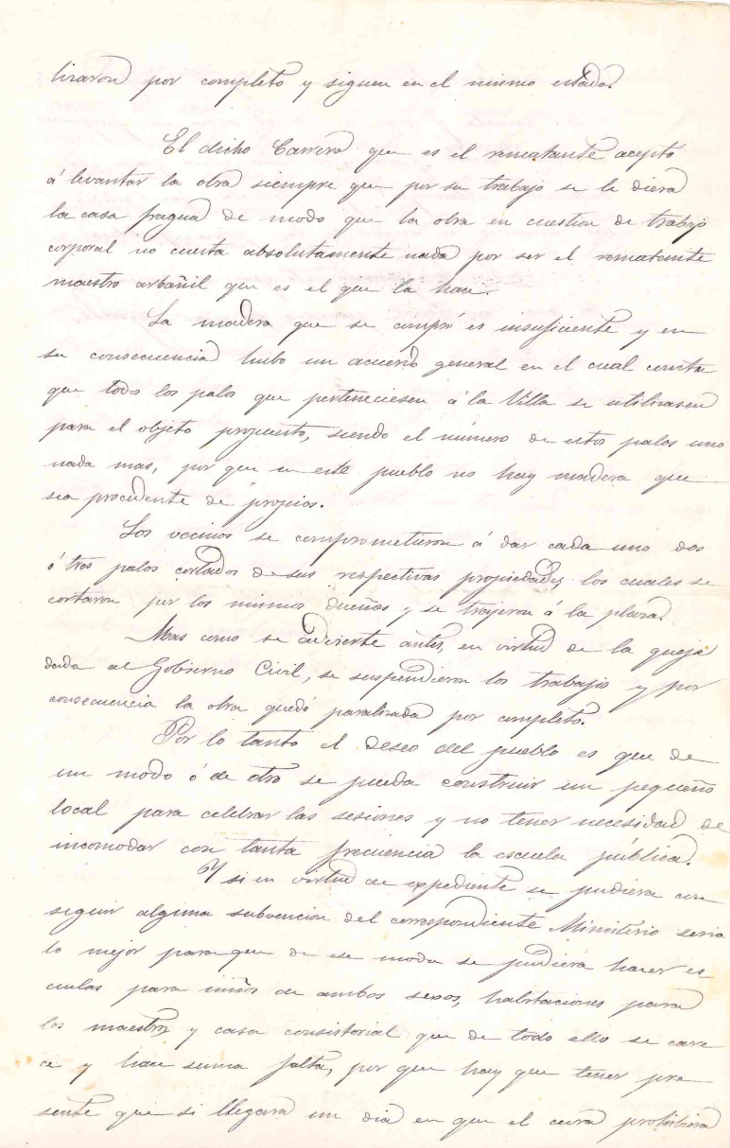 tiraron por completo y siguen en el mismo estado.
El dicho Carrera que es el rematante aceptó
á levantar la obra siempre que por su trabajo se le diera
la casa fragua de modo que la obra en cuestion de trabajo
corporal no cuesta absolutamente nada por ser el rematante
maestro arbañil que es el que la hace.
La madera que se compró es insuficiente y en
su consecuencia hubo un acuerdo general en el cual consta
que todo los palos que perteneciesen á la Villa se utilizasen
para el objeto propuesto, siendo el número de estos palos uno
nada mas, por que en este pueblo no hay madera que
sea procedente de propios.
Los vecinos se comprometieron á dar cada uno dos
ó tres palos cortados de sus respectivas propiedades, los cuales se
cortaron por los mismos dueños y se trajeron á la plaza.
Mas como se advierte antes, en virtud de la queja
dada al Gobierno Civil, se suspendieron los trabajo y por
consecuencia la obra quedo paralizada por completo.
Por lo tanto el deseo del pueblo es que de
un modo ó de otro se pueda construir un pequeño
local para celebrar las sesiones y no tener necesidad de
incomodar con tanta frecuencia la escuela pública.
Y si en virtud de expediente se pudiera con
seguir alguna subvencion del correspondiente Ministerio seria
lo mejor para que de ese modo se pudiera hacer es
cuelas para niños de ambos sexos, habitaciones para
los maestros y casa consistorial que de todo ello se care
ce y hace suma falta, por que hay que tener pre
sente que si llegara un dia en que el cura prohibiera